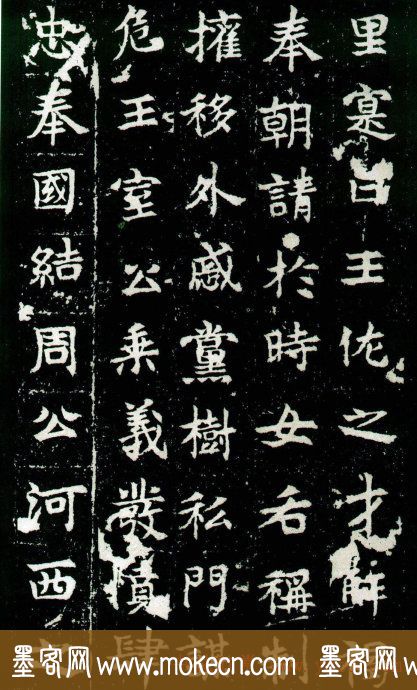 里寔曰王佐之才解褐
奉朝請於時女后稱制
擁移外戚黨樹私門謀
危王室公乘義發憤肆
忠奉國結周公河西
墨客网 www.mokecn.com 墨客网